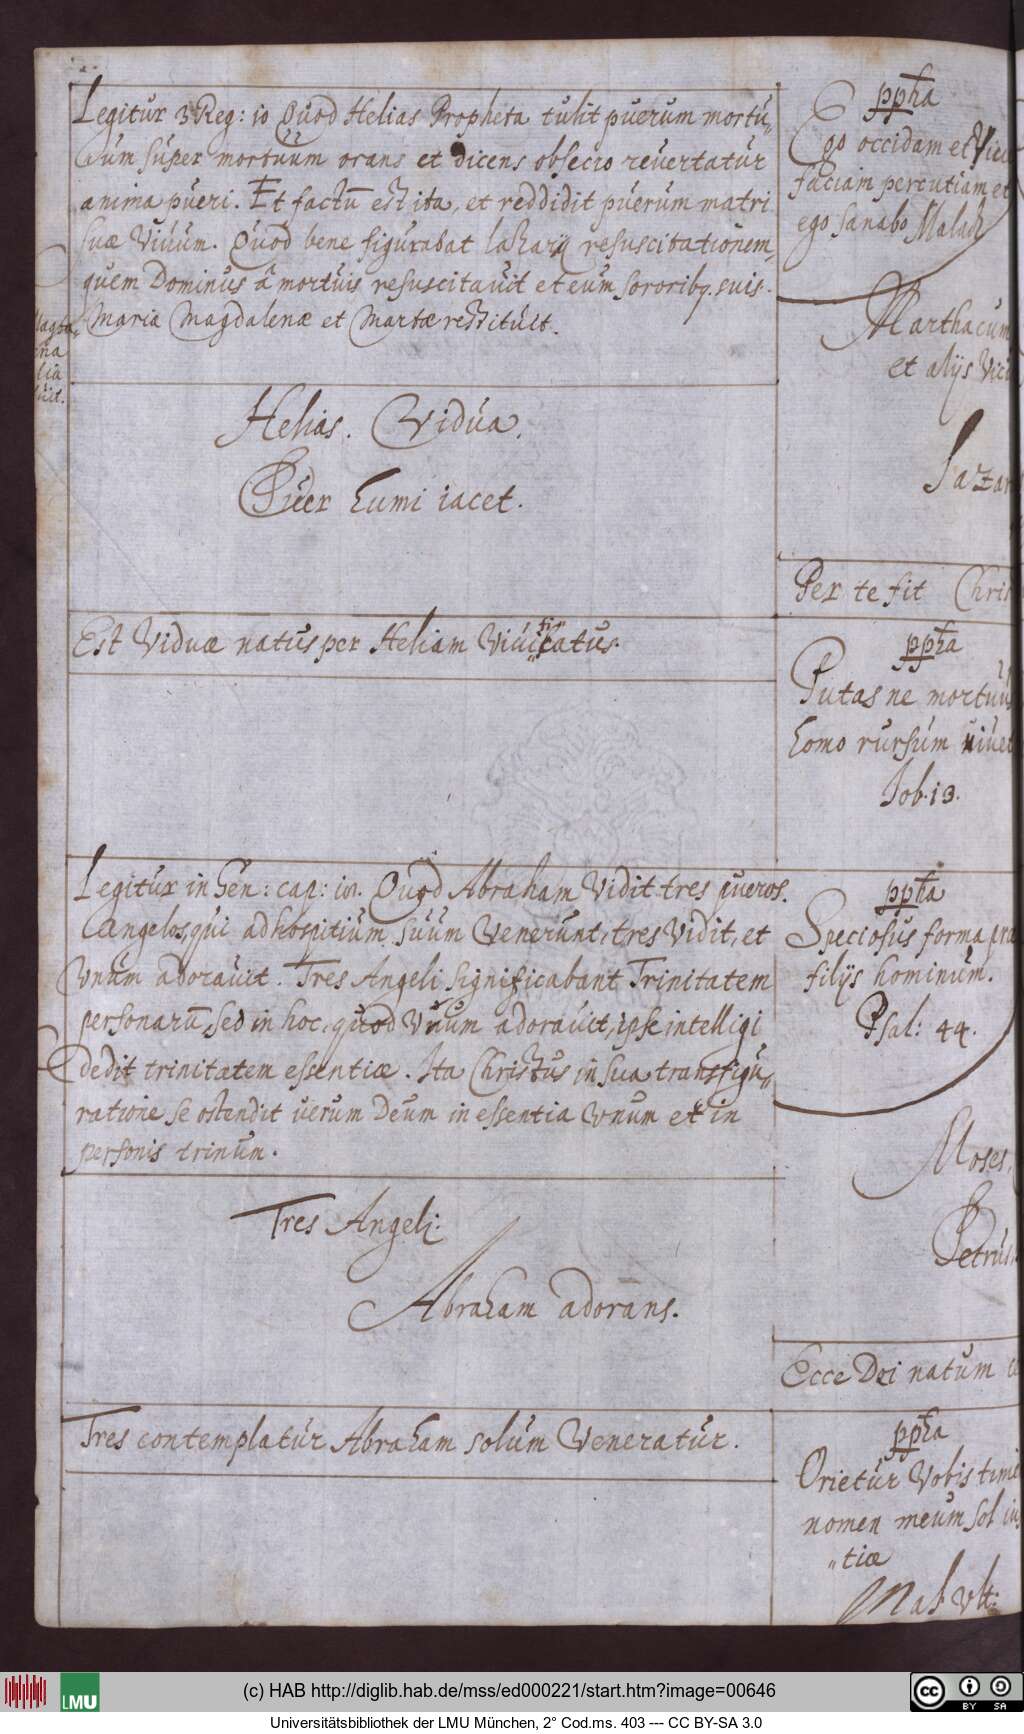 Legitur 3 Reg: 10 Quod Helias Propheta tulit puerum mortu„
um super mortuum orans et dicens obsecro revertatur
anima pueri. Et factū est ita, et reddidit puerum matri
suæ Vivum. Quod bene figurabat laZarij resuscitationem,
quem Dominus â mortuis resuscitavit et eum sororibq. suis.
Maria Magdalenæ et Martæ restituit.
Helias. Vidua.
Puer humi iacet.
Est Viduæ natus per Heliam Vivificatus.
Legitur in Gen: cap: 18. Quod Abraham Vidit tres pueros.
Angelos, qui ad hospitium suum Venerunt, tres Vidit, et
Vnum adoravit. Tres Angeli significabant Trinitatem
personarū, sed in hoc, quod Vnum adoravit, ipse intelligi
dedit trinitatem essentiæ. Ita Christus in sua transfigu„
ratione se ostendit verum Deum in essentia Vnum et in
personis trinum.
Tres Angeli.
Abraham adorans.
Tres contemplatur Abraham solum Veneratur.
ppha
Ego occidam et Vive
faciam percutiam et
ego sanabo Malach
Martha cum
et alijs
Lazar
Per te fit Chris
ppha
Putas ne mortuus
homo rursum vivet
Job. 13.
ppha
Speciosus forma præ
filijs hominum.
Psal: 44.
Moses.
Petrus.
Ecce Dei natum
ppha
Orietur Vobis time
nomen meum sol ius
„tiæ
Mal Vlt:
(c) HAB http://diglib.hab.de/mss/ed000221/start.htm?image=00646
LMU
Universitätsbibliothek der LMU München, 2° Cod.ms. 403 --- CC BY-SA 3.0
cc BY SA